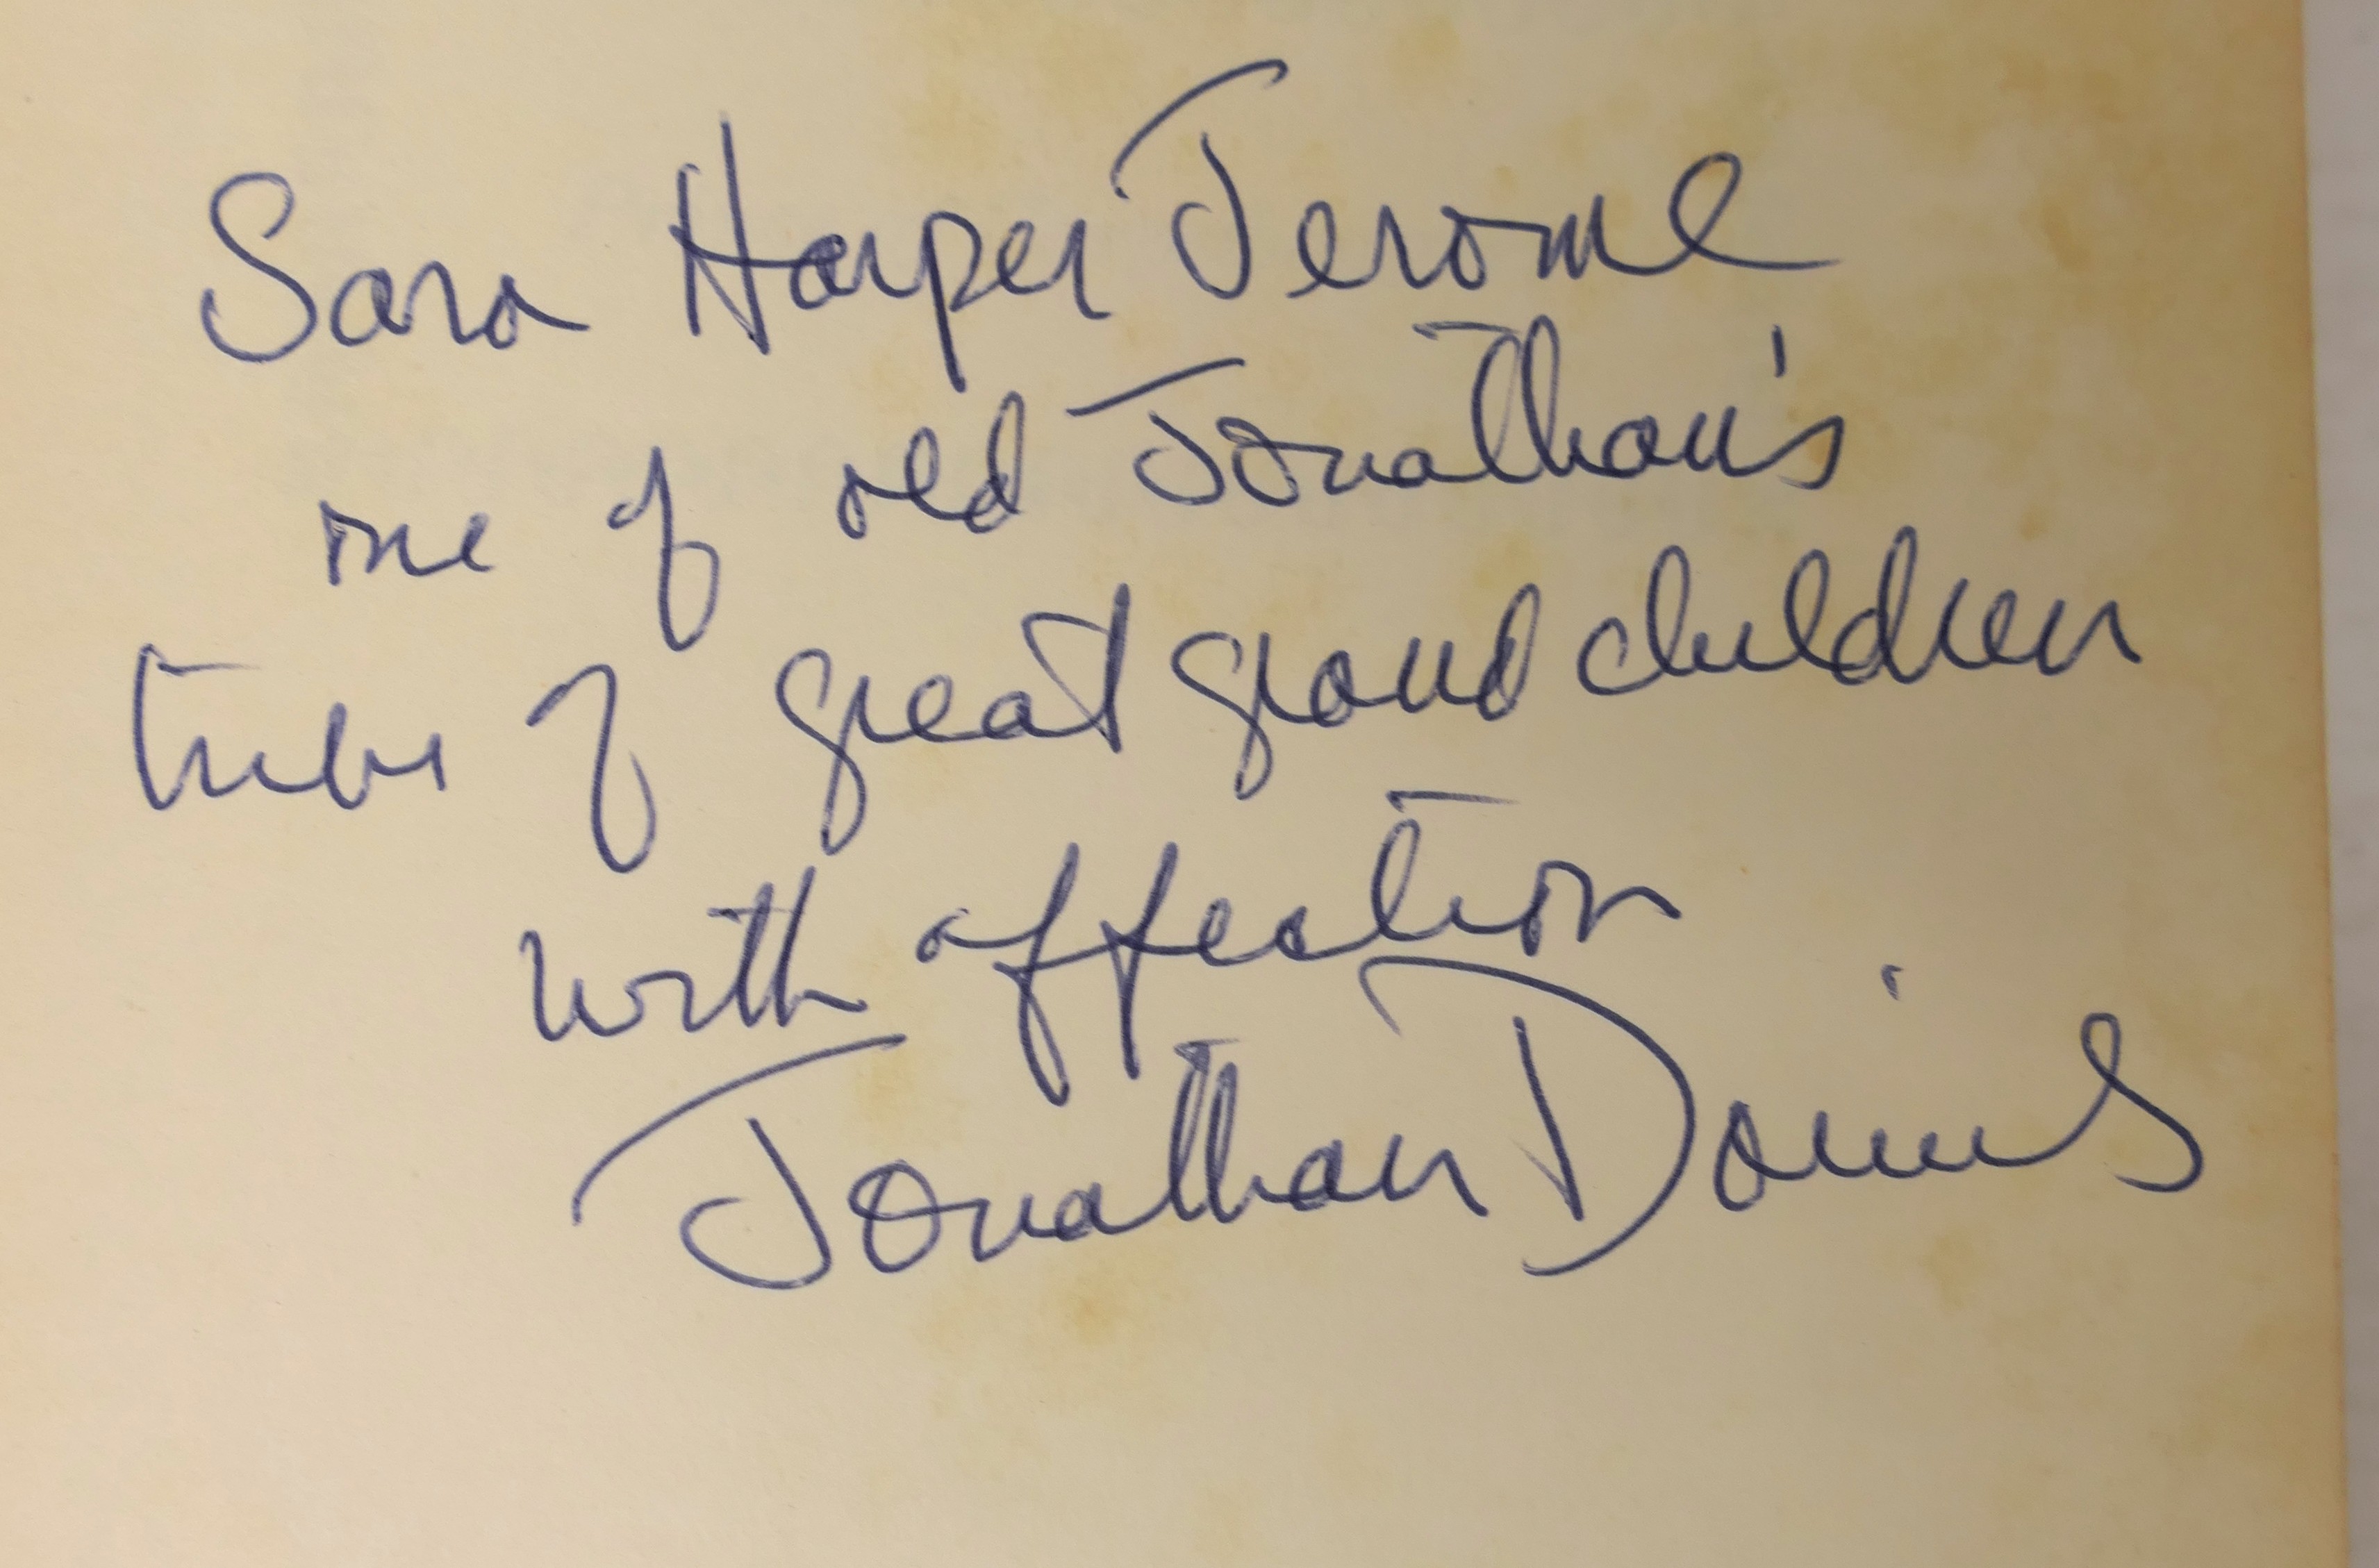 Sara Harper Jerome
one of old Jonathan's
tribe of great grand children
with affection
Jonathan Daniels